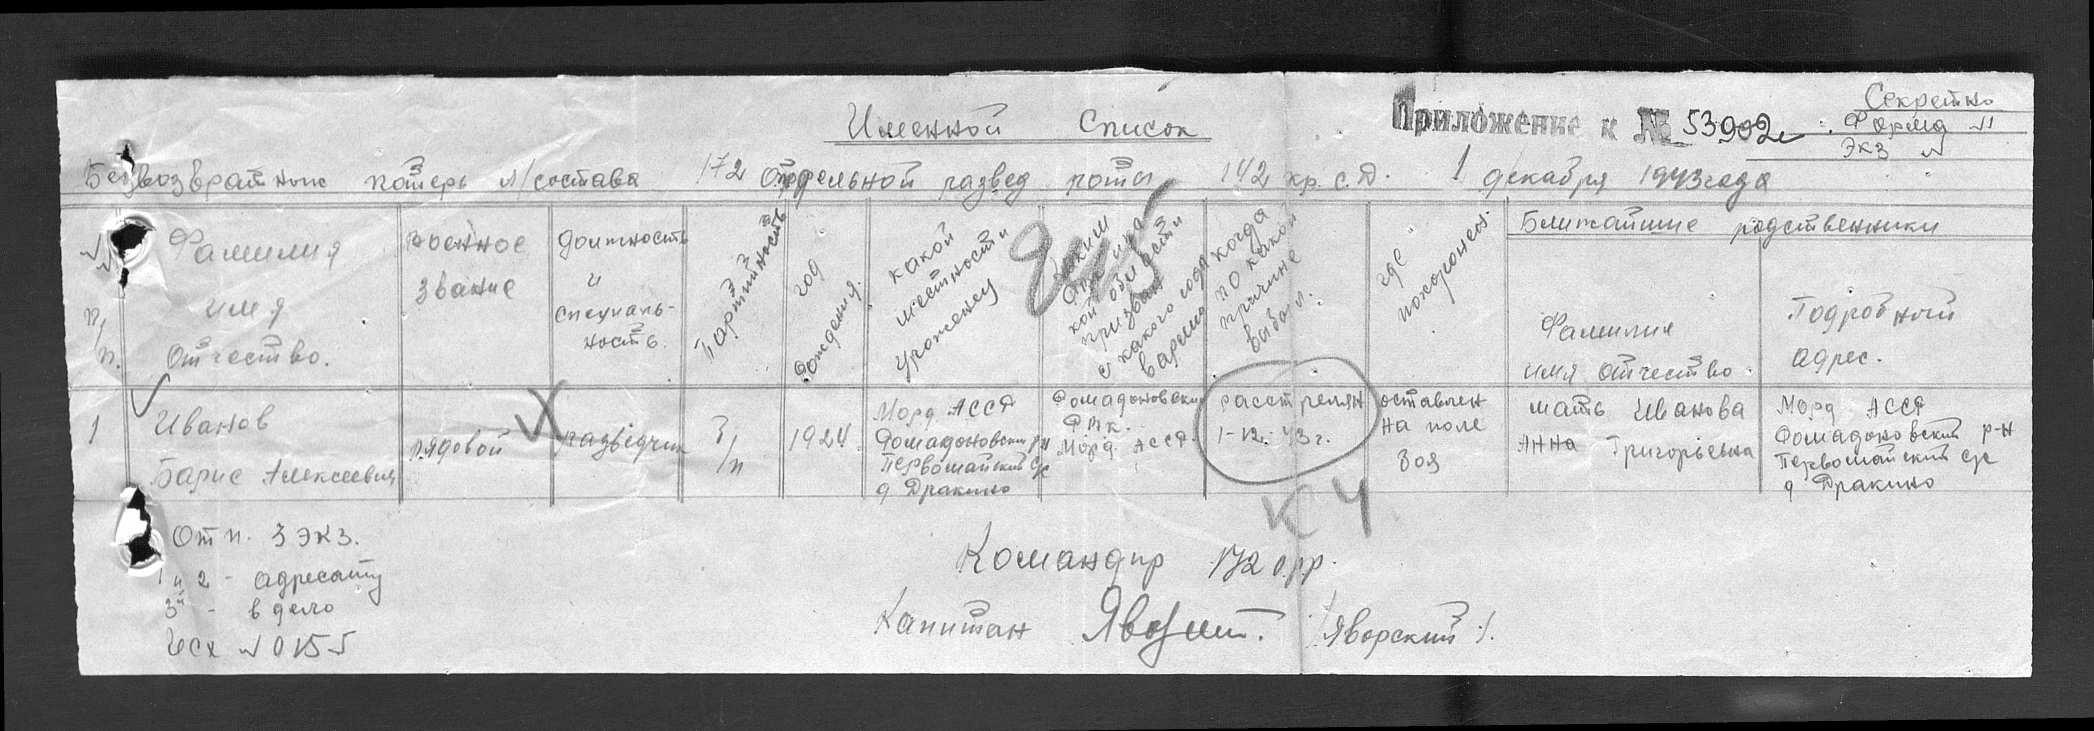 Секретно
Именной Список
Приложение к № 53902с
Форма №1
Экз №
Безвозвратных потерь л/состава 172 отдельной развед роты 142 кр. с.д. 1 декабря 1943 года
№№ п/п.
Фамилия
имя
Отчество.
военное
звание
должность
и
специаль-
ность.
Партийность
год
рождения.
какой
местности
уроженец
Каким
когда
по какой
причине
выбыл.
где
похоронен.
Ближайшие родственники
Фамилия
имя отчество.
Подробный
адрес.
1
Иванов
Барис Алексеевич
рядовой
разведчик
б/п
1924.
Морд АССР
Ромадановский р-н
Первомайский с/с
д Дракино
Ромадановский
РВК.
Морд. АССР.
расстрелян
1-12-43 г.
оставлен
на поле
боя
мать Иванова
Анна Григорьевна
Морд АССР
Ромадановский р-н
Первомайский с/с
д Дракино
К Ч
Отп. 3 экз.
1 и 2 - адресату
3й - в дело
Исх № 015
Командир 172 орр.
Капитан
/Яворский/.